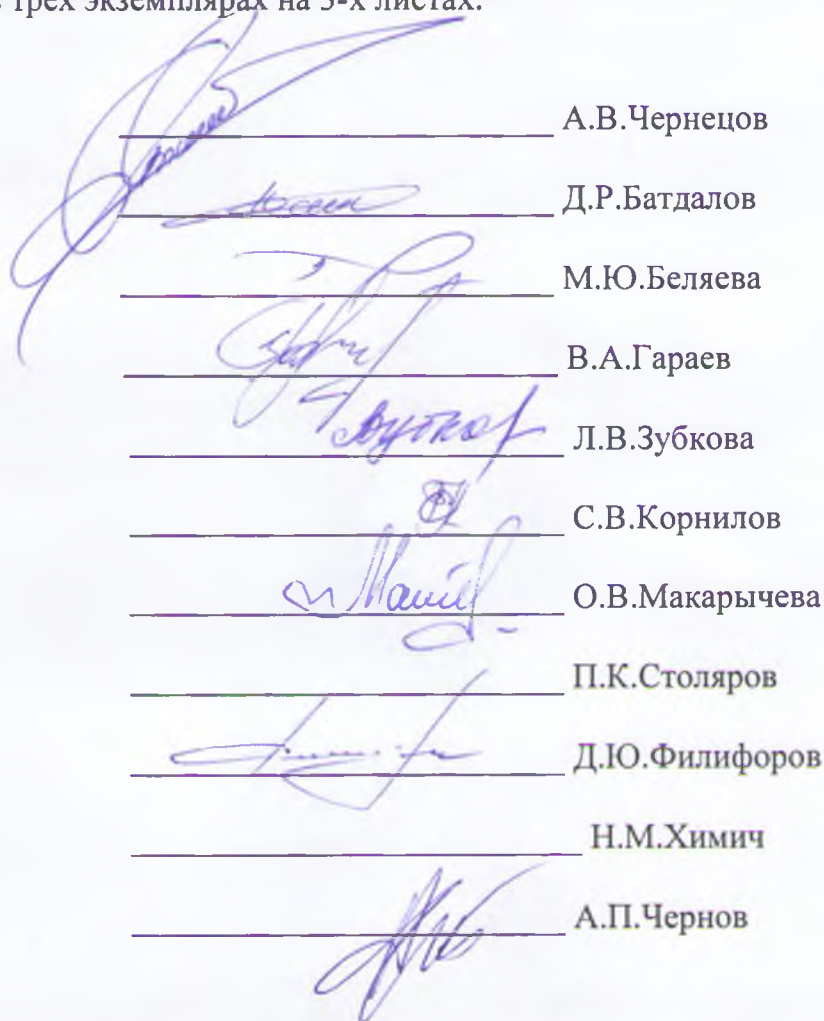 трех экземплярах на 3-х листах.
А.В.Чернецов
Д.Р.Батдалов
М.Ю.Беляева
В.А.Гараев
Л.В.Зубкова
С.В.Корнилов
О.В.Макарычева
П.К.Столяров
Д.Ю.Филифоров
Н.М.Химич
А.П.Чернов